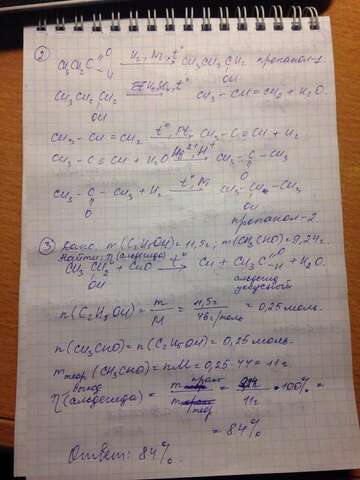 ② CH₃CH₂C=O -H H₂, Ni, t° CH₃CH₂CH₂ OH пропанол-1
CH₃CH₂CH₂ OH H₂SO₄, t° CH₃-CH=CH₂ + H₂O.
CH₃-CH=CH₂ t°, Pt CH₃-C≡CH + H₂
CH₃-C≡CH + H₂O Hg²⁺, H⁺ CH₃-C-CH₃ O
CH₃-C-CH₃ + H₂ O t°, Ni CH₃-CH-CH₃ OH
пропанол-2
③ Дано: m(C₂H₅OH)=11,5г; m(CH₃CHO)=9,24г.
Найти: η(альдегида)
CH₃CH₂ OH + CuO t° Cu + CH₃C=O -H + H₂O.
альдегид
уксусный
n(C₂H₅OH) = m/M = 11,5г/46г/моль = 0,25 моль.
n(CH₃CHO) = n(C₂H₅OH) = 0,25 моль.
m теор (CH₃CHO) = nM = 0,25·44 = 11г
выход
η(альдегида) = m практ/m теор = 9,24/11г ·100% =
= 84%
Ответ: 84%.